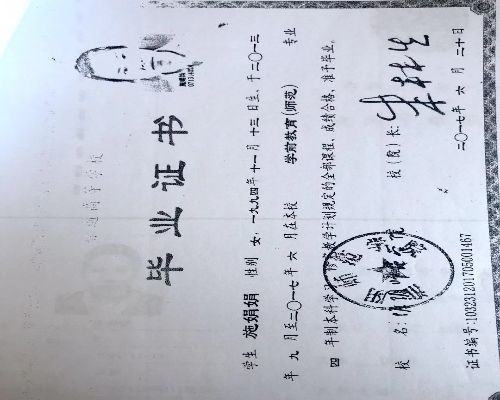 普通高等学校
毕业证书
学生 施娟娟 性别 女，一九九四年十一月十三日生，于二〇一三
年九月至二〇一七年六月在本校 学前教育(师范) 专业
四年制本科学习，教学计划规定的全部课程，成绩合格，准予毕业。
校 名： 校（院）长：
二〇一七年六月二十日
证书编号:103231201705001467